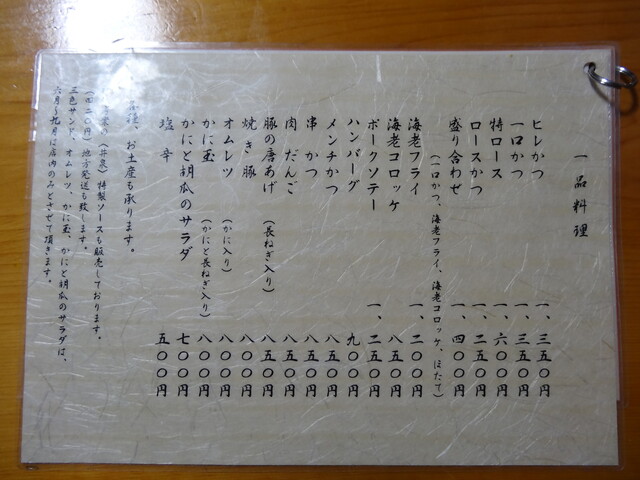 一品料理
ヒレかつ 一、三五〇円
一口かつ 一、三五〇円
特ロース 一、六〇〇円
ロースかつ 一、二五〇円
盛り合わせ 一、四〇〇円
(一口かつ、海老フライ、海老コロッケ、ほたて)
海老フライ 一、二〇〇円
海老コロッケ 八五〇円
ポークソテー 一、二五〇円
ハンバーグ 九〇〇円
メンチかつ 八五〇円
串かつ 八五〇円
肉だんご 八五〇円
豚の唐あげ (長ねぎ入り) 八五〇円
焼き豚 八〇〇円
オムレツ (かに入り) 八〇〇円
かに玉 (かにと長ねぎ入り) 八〇〇円
かにと胡瓜のサラダ 七〇〇円
塩辛 五〇〇円
お土産も承ります。
(井泉)特製ソースも販売しております。
円)地方発送も致します。
三色サンド、オムレツ、かに玉、かにと胡瓜のサラダは、
六月~九月は店内のみとさせて頂きます。